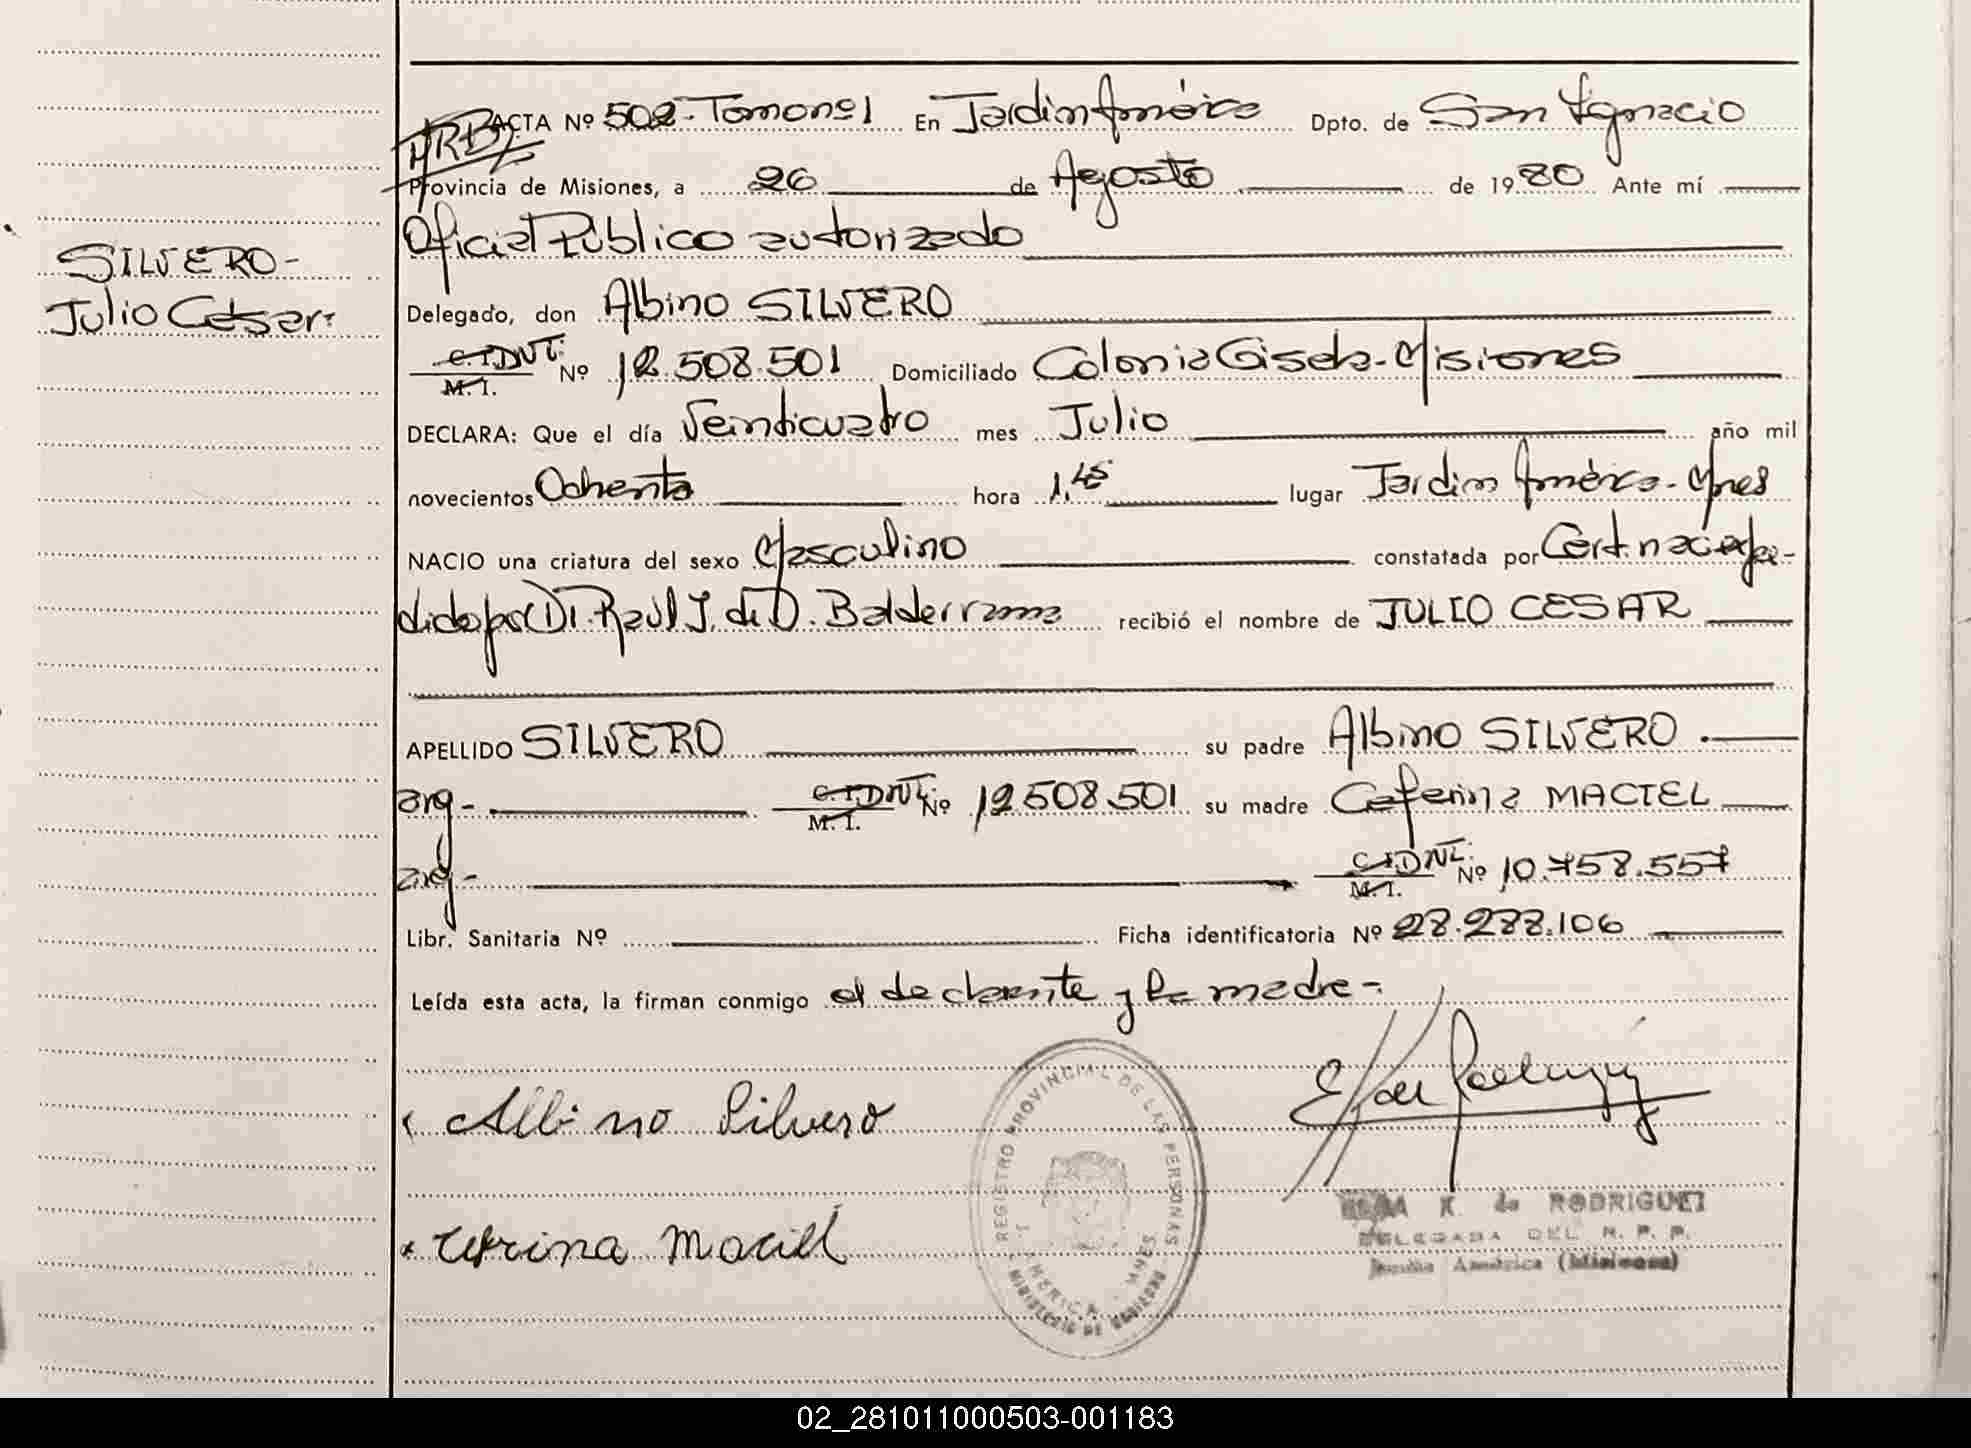 ACTA Nº 502- Tomo nº 1 En Jardin América Dpto. de San Ignacio
Provincia de Misiones, a 26 de Agosto de 1980 Ante mí
Oficial Público autorizado
SILVERO-
Julio César.
Delegado, don Albino SILVERO
C.I. DNI. Nº 12.508.501 Domiciliado Colonia Gisela-Misiones
M. I.
DECLARA: Que el día Veinticuatro mes Julio año mil
novecientos Ochenta hora 1,45 lugar Jardin América-Mnes
NACIO una criatura del sexo Masculino constatada por Cert. nac. expe-
dido por Dr. Raúl J. de D. Balderrama recibió el nombre de JULIO CESAR
APELLIDO SILVERO su padre Albino SILVERO.
arg- C.I. DNI. Nº 12.508.501 su madre Ceferina MACIEL
M. I.
arg- C.I. DNI. Nº 10.758.557
M. I.
Libr. Sanitaria Nº Ficha identificatoria Nº 28.288.106
Leída esta acta, la firman conmigo el declarante y la madre-
Albino Silvero
REGISTRO PROVINCIAL DE LAS PERSONAS
MINISTERIO DE GOBIERNO
K. de RODRIGUEZ
DELEGADA DEL R. P. P.
Jardin América (Misiones)
02_281011000503-001183